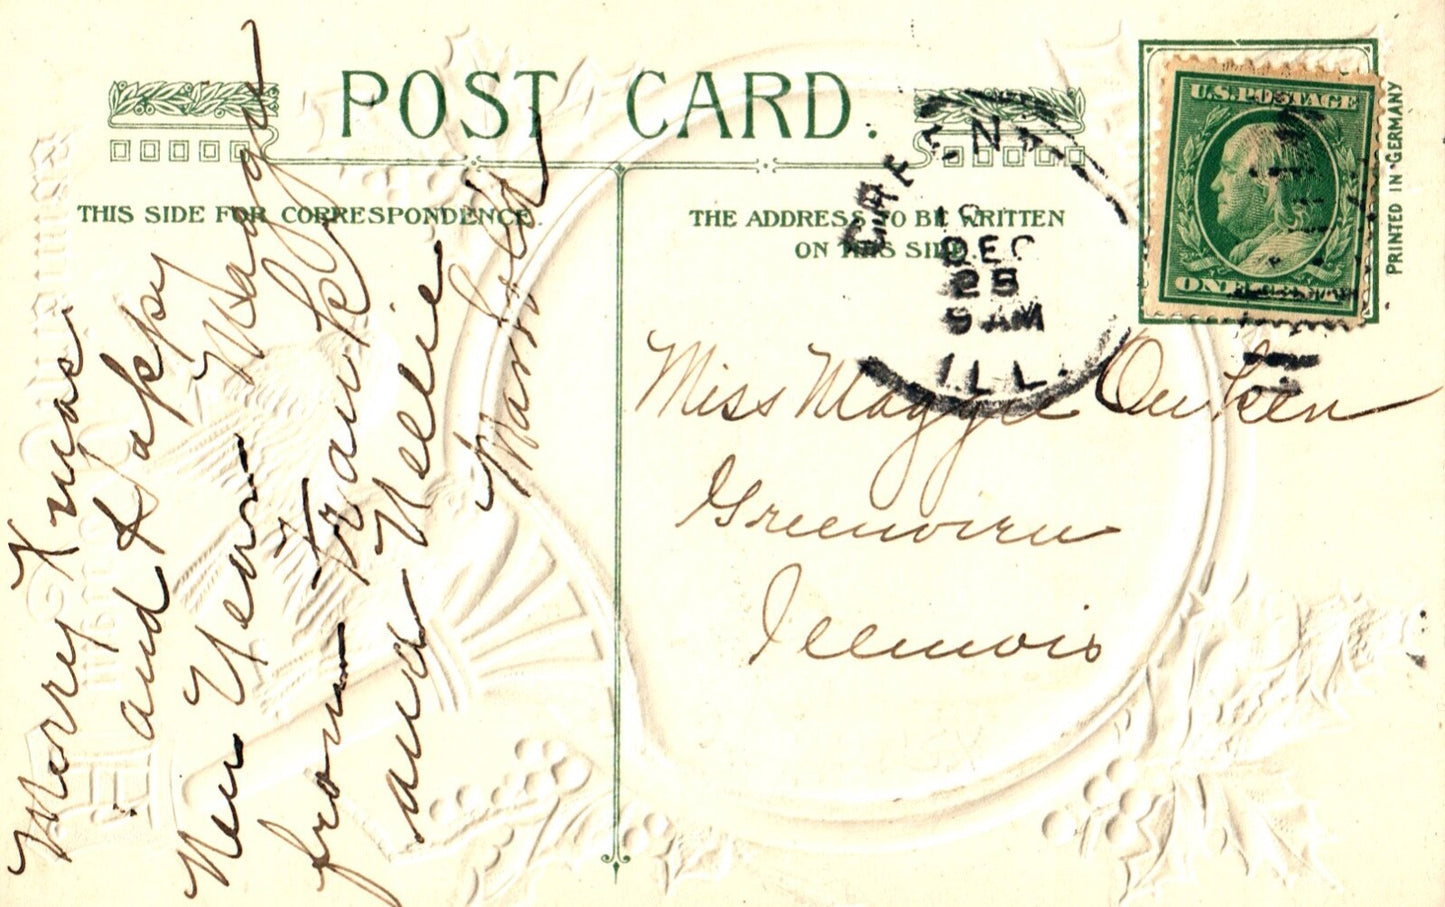 POST CARD.
THIS SIDE FOR CORRESPONDENCE.
THE ADDRESS TO BE WRITTEN
ON THIS SIDE
U.S. POSTAGE
ONE
PRINTED IN GERMANY
DEC
25
9 AM
ILL.
Miss Maggie
Illinois
Merry Xmas
and Happy
New Year Maggie
from Frank
and Nellie